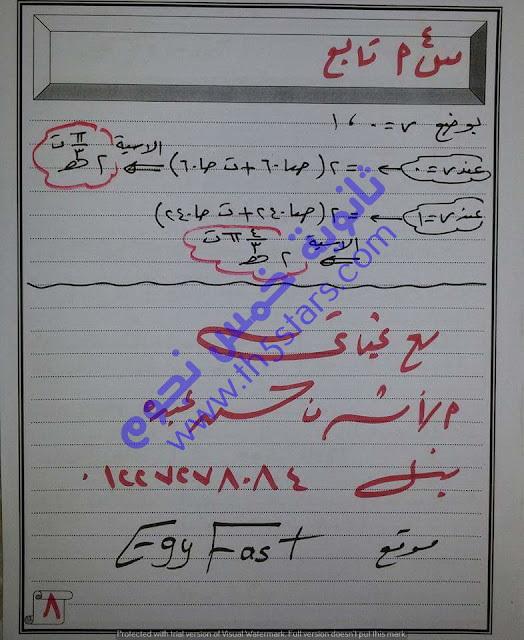 تابع
بوضع ر = ٠ ، ١
عند ر = ٠ ← = ٢ ( جتا ٦٠ + ت جا ٦٠ ) ⇐ الاسية ٢ هـ π/٣ ت
عند ر = ١ ← = ٢ ( جتا ٢٤٠ + ت جا ٢٤٠ )
⇐ الاسية ٢ هـ ٤/٣ π ت
مع تحياتى
عبده
٠١٢٢٧٢٧٨٠٨٤
موقع Egy Fast
٨
ثانوية خمس نجوم
www.th5stars.com
Protected with trial version of Visual Watermark. Full version doesn't put this mark.